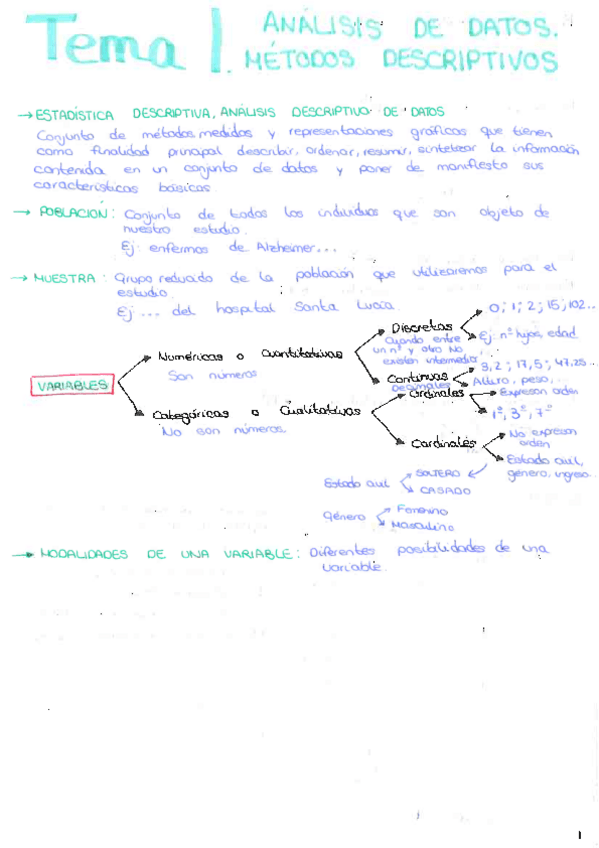 Tema 1. ANÁLISIS DE DATOS.
MÉTODOS DESCRIPTIVOS
→ ESTADÍSTICA DESCRIPTIVA, ANÁLISIS DESCRIPTIVO DE DATOS
Conjunto de métodos, medidas y representaciones gráficas que tienen
como finalidad principal describir, ordenar, resumir, sintetizar la información
contenida en un conjunto de datos y poner de manifiesto sus
características básicas
→ POBLACIÓN: Conjunto de todos los individuos que son objeto de
nuestro estudio.
Ej: enfermos de Alzheimer...
→ MUESTRA: Grupo reducido de la población que utilizaremos para el
estudio.
Ej ... del hospital Santa Lucía.
VARIABLES
Numéricas o Cuantitativas
Son números
Discretas
Cuando entre
un nº y otro No
existen intermedios
0; 1; 2; 15; 102..
Ej: nº hijos, edad
Continuas
Decimales
3,2; 17,5; 47,25...
Altura, peso,...
Categóricas o Cualitativas
No son números.
Ordinales
Expresan orden
1º, 3º, 7º
Cardinales
No expresan
orden
Estado civil,
género, ingreso...
Estado civil
SOLTERO
CASADO
Género
Femenino
Masculino
→ MODALIDADES DE UNA VARIABLE: Diferentes posibilidades de una
variable.
1